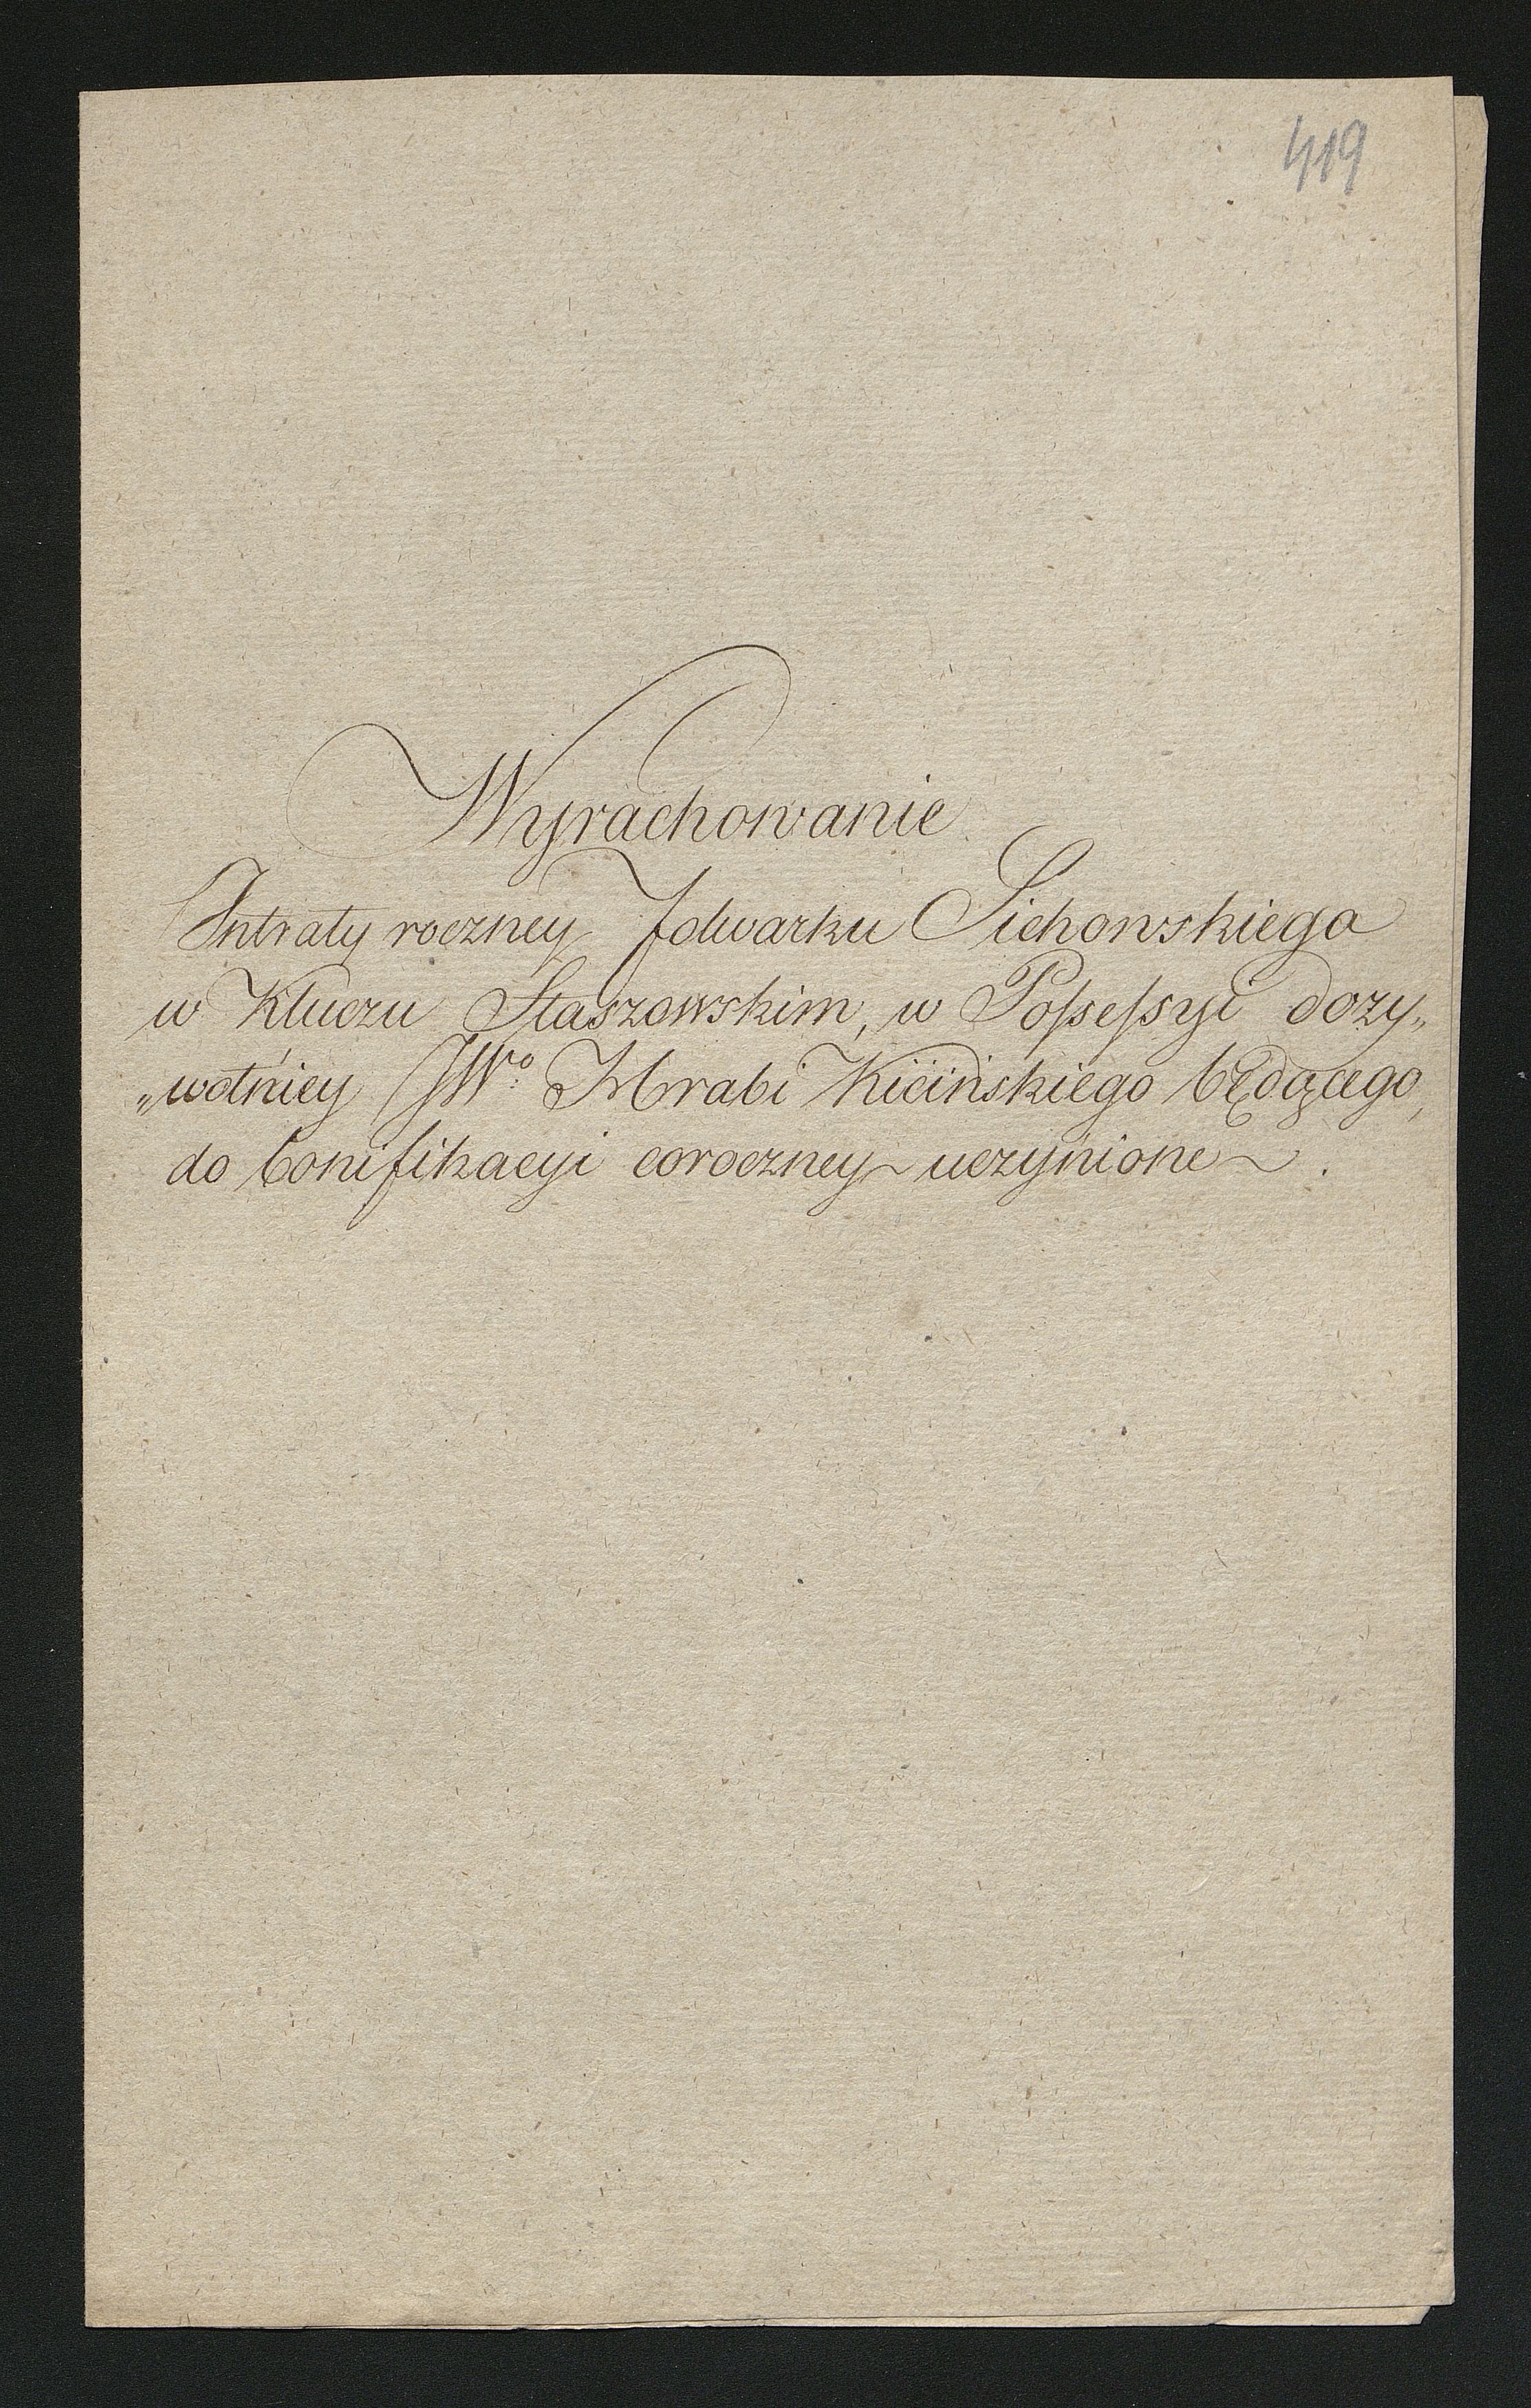 419
Wyrachowanie
Intraty roczney folwarku Sichowskiego
w Kluczu Staszowskim, w Poſseſsyi dozy„
„wotniey JWº Hrabi Kicińskiego będącego,
do bonifikacyi coroczney uczynione.